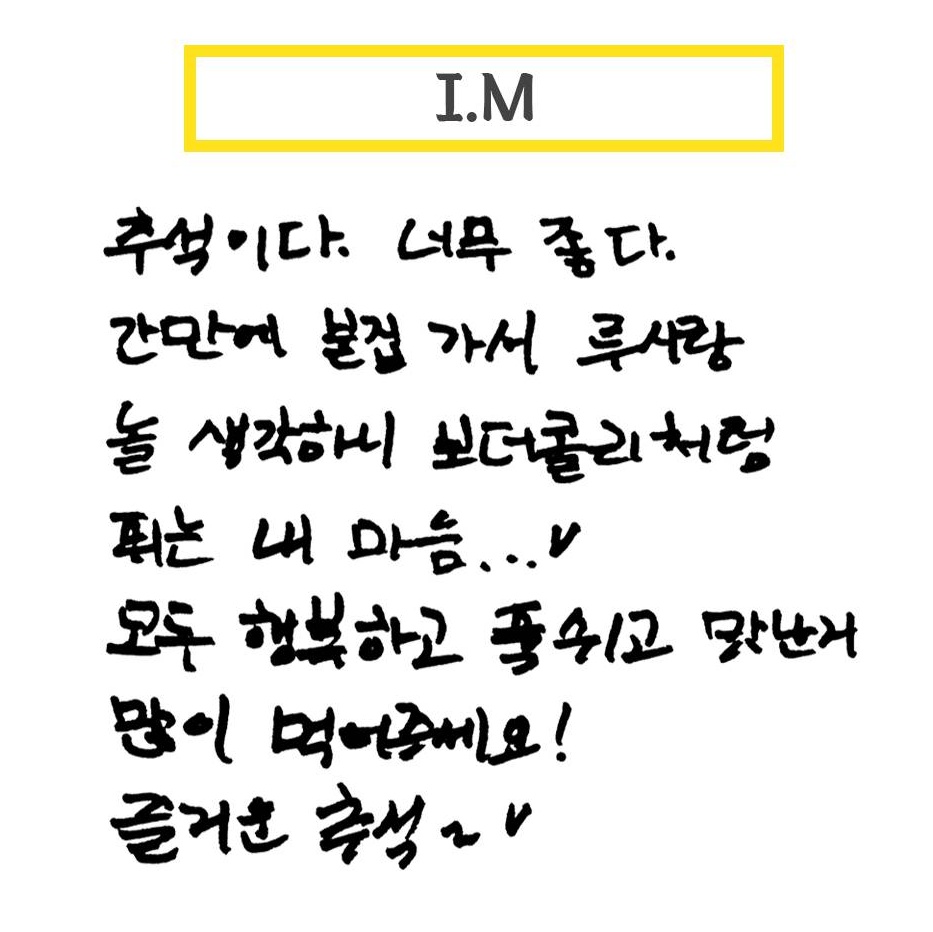 I.M
추석이다. 너무 좋다.
간만에 본집 가서 루사랑
놀 생각하니 보더콜리처럼
뛰는 내 마음...♥
모두 행복하고 푹 쉬고 맛난거
많이 먹어주세요!
즐거운 추석~♥